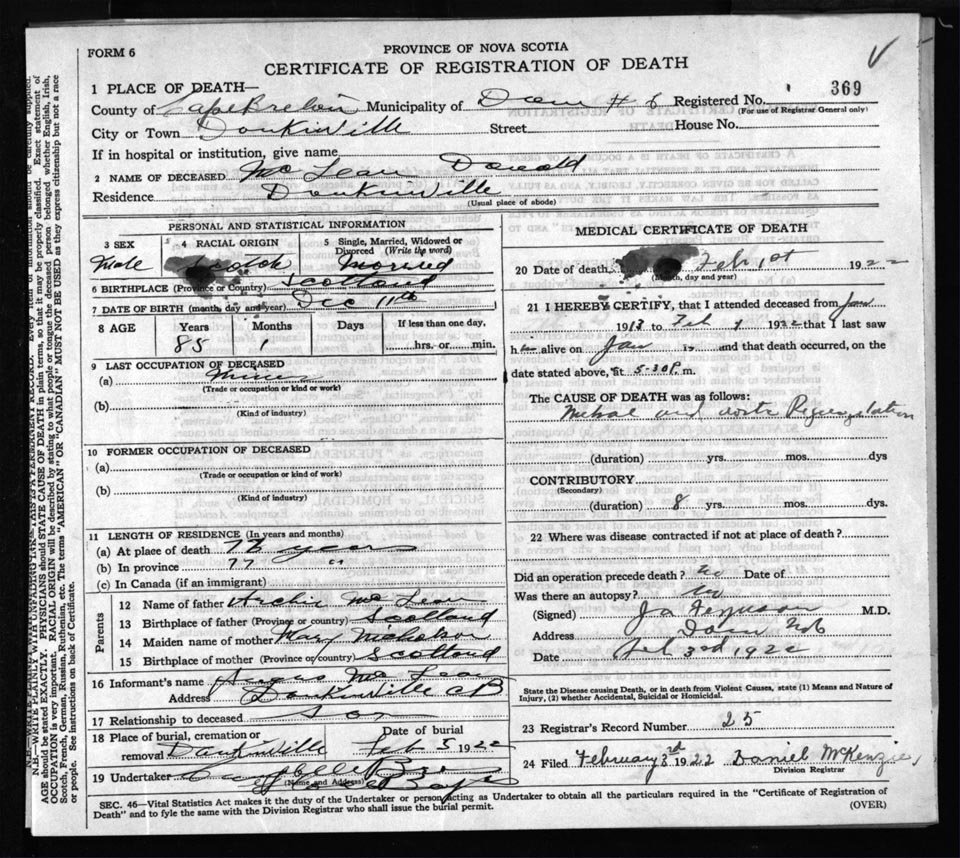 FORM 6
PROVINCE OF NOVA SCOTIA
CERTIFICATE OF REGISTRATION OF DEATH
1 PLACE OF DEATH—
369
County of Cape Breton Municipality of Registered No.
(For use of Registrar General only)
City or Town Donkinville Street House No.
If in hospital or institution, give name
2 NAME OF DECEASED Mc Lean Donald
Residence Donkinville
(Usual place of abode)
PERSONAL AND STATISTICAL INFORMATION
3 SEX 4 RACIAL ORIGIN 5 Single, Married, Widowed or Divorced (Write the word)
Male Scotch Married
6 BIRTHPLACE (Province or Country) Scotland
7 DATE OF BIRTH (month, day and year) Dec 11th
8 AGE Years Months Days If less than one day,
85 1 hrs. or min.
9 LAST OCCUPATION OF DECEASED
(a)
(Trade or occupation or kind of work)
(b)
(Kind of industry)
10 FORMER OCCUPATION OF DECEASED
(a)
(Trade or occupation or kind of work)
(b)
(Kind of industry)
11 LENGTH OF RESIDENCE (In years and months)
(a) At place of death years
(b) In province 77 "
(c) In Canada (if an immigrant)
Parents
12 Name of father Archie Mc Lean
13 Birthplace of father (Province or country) Scotland
14 Maiden name of mother Mary Nicholson
15 Birthplace of mother (Province or country) Scotland
16 Informant's name Angus Mc Lean
Address Donkinville C B
17 Relationship to deceased son
18 Place of burial, cremation or removal Donkinville Date of burial Feb 5 1922
19 Undertaker
(Name and Address)
MEDICAL CERTIFICATE OF DEATH
20 Date of death Feb 1st 1922
(Month, day and year)
21 I HEREBY CERTIFY, that I attended deceased from Jan
1913 to Feb 1 1922 that I last saw
him alive on Jan 19 and that death occurred, on the
date stated above, at 5-30 P. m.
The CAUSE OF DEATH was as follows:
Mitral and aortic Regurgitation
(duration) yrs. mos. dys
CONTRIBUTORY
(Secondary)
(duration) 8 yrs. mos. dys.
22 Where was disease contracted if not at place of death?
Did an operation precede death? no Date of
Was there an autopsy? no
(Signed) Ferguson M.D.
Address
Date Feb 3rd 1922
State the Disease causing Death, or in death from Violent Causes, state (1) Means and Nature of
Injury, (2) whether Accidental, Suicidal or Homicidal.
23 Registrar's Record Number 25
24 Filed February 3rd 1922 Daniel McKenzie
Division Registrar
SEC. 46—Vital Statistics Act makes it the duty of the Undertaker or person acting as Undertaker to obtain all the particulars required in the "Certificate of Registration of
Death" and to fyle the same with the Division Registrar who shall issue the burial permit.
(OVER)
N.B.—WRITE PLAINLY WITH UNFADING INK—THIS IS A PERMANENT RECORD. Every item of information should be carefully supplied.
AGE should be stated EXACTLY. PHYSICIANS should STATE CAUSE OF DEATH in plain terms, so that it may be properly classified. Exact statement of
OCCUPATION is very important. RACIAL ORIGIN will be described by stating to what people or tongue the deceased person belonged whether English, Irish,
Scotch, French, German, Russian, Ruthenian, etc. The terms "AMERICAN" OR "CANADIAN" MUST NOT BE USED as they express citizenship but not a race
or people. See instructions on back of Certificate.